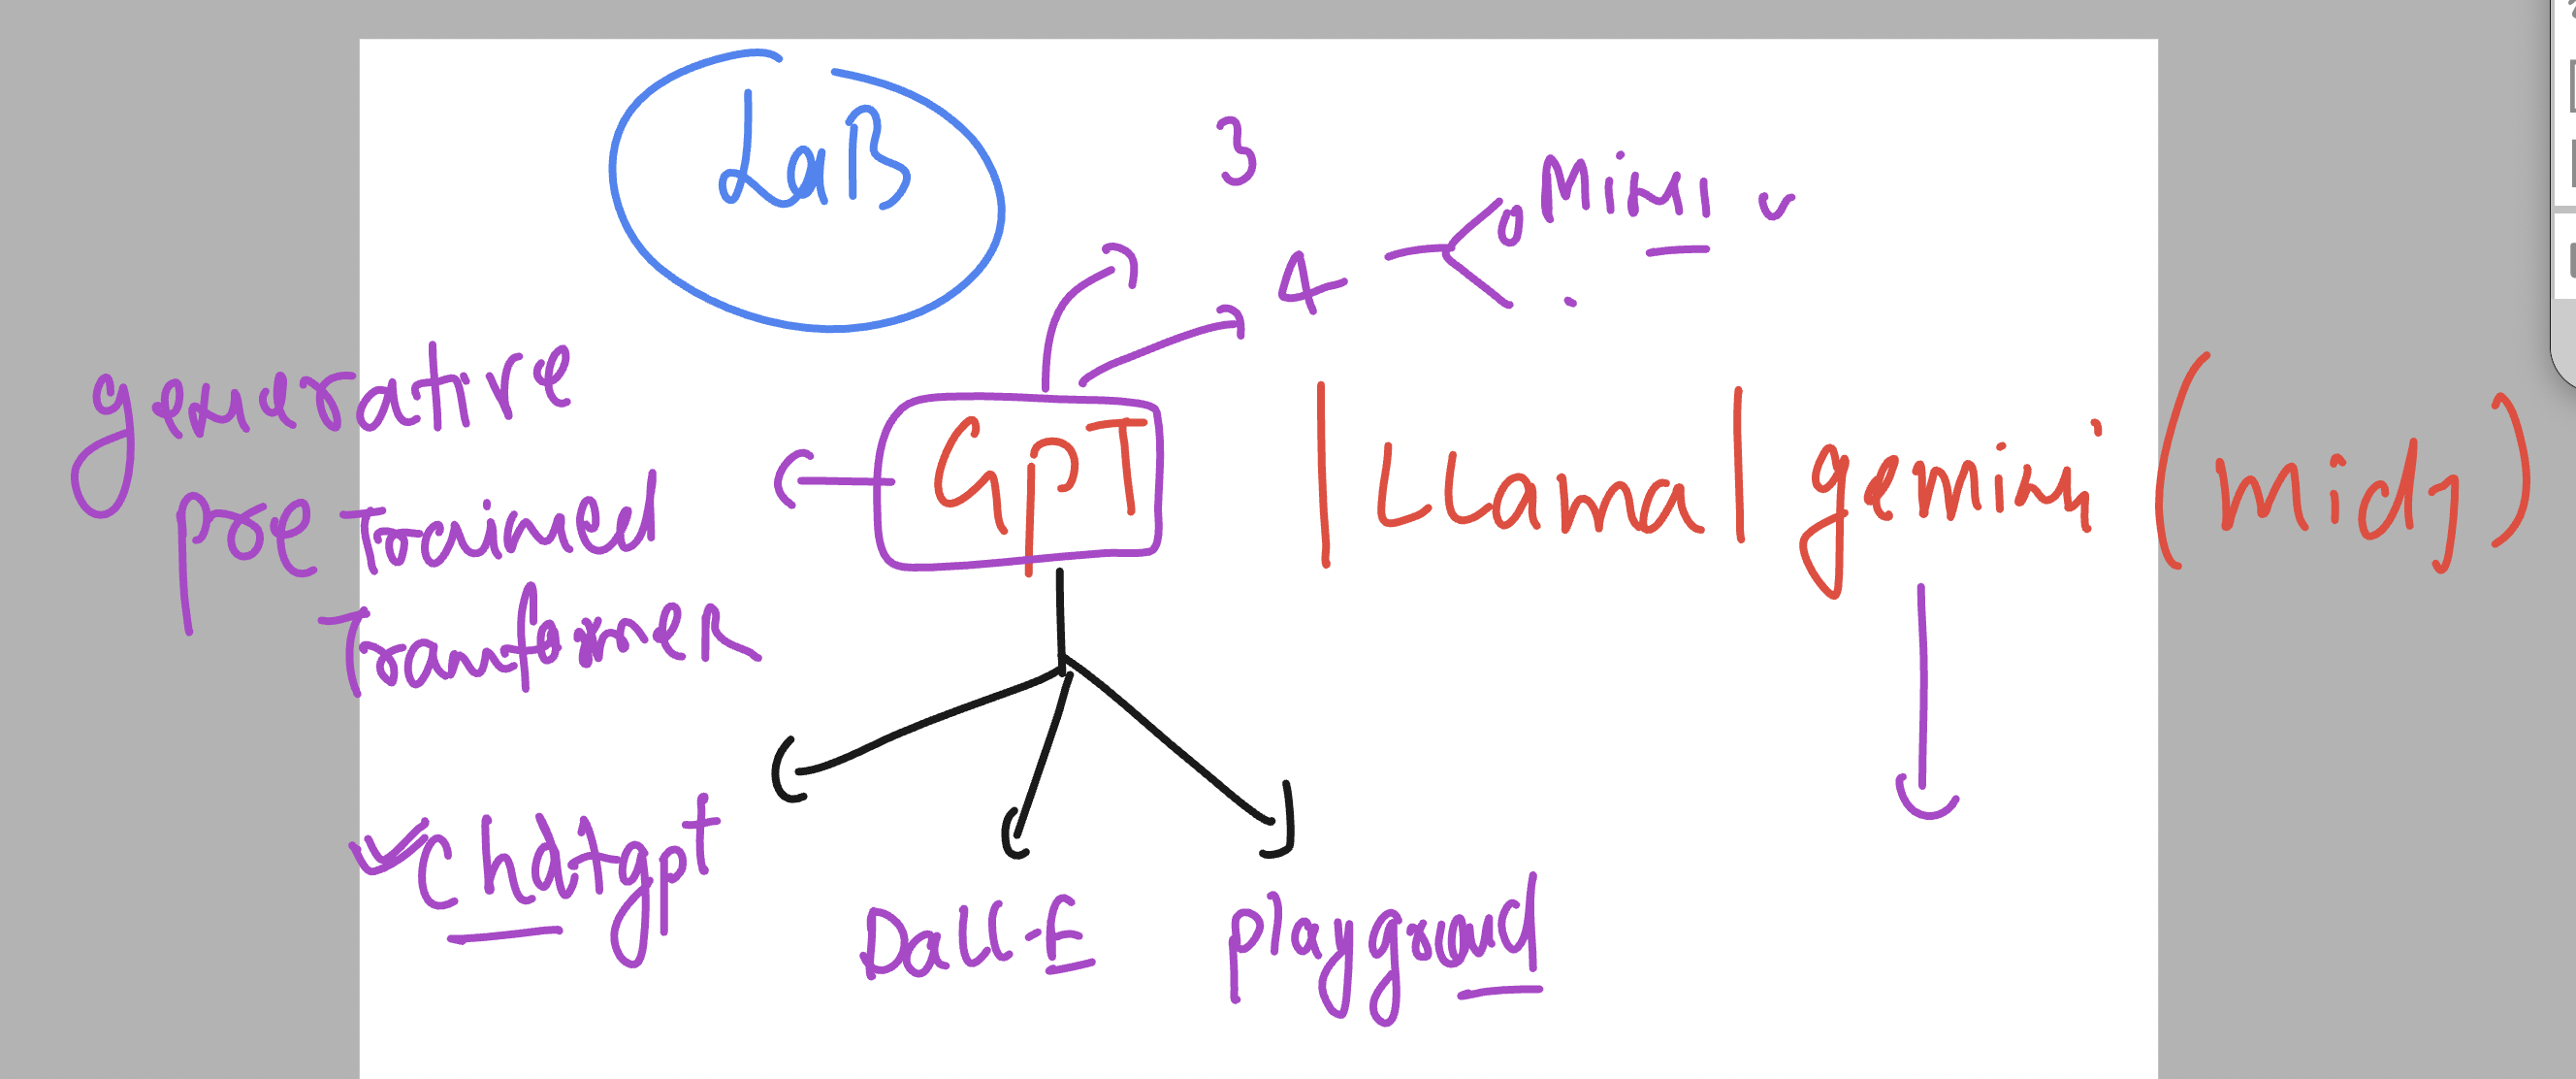 LaB
3
4
o Mini
generative
pre Trained
Tranformer
GPT | LLama | gemini (midj)
Chatgpt
Dall-E
playground